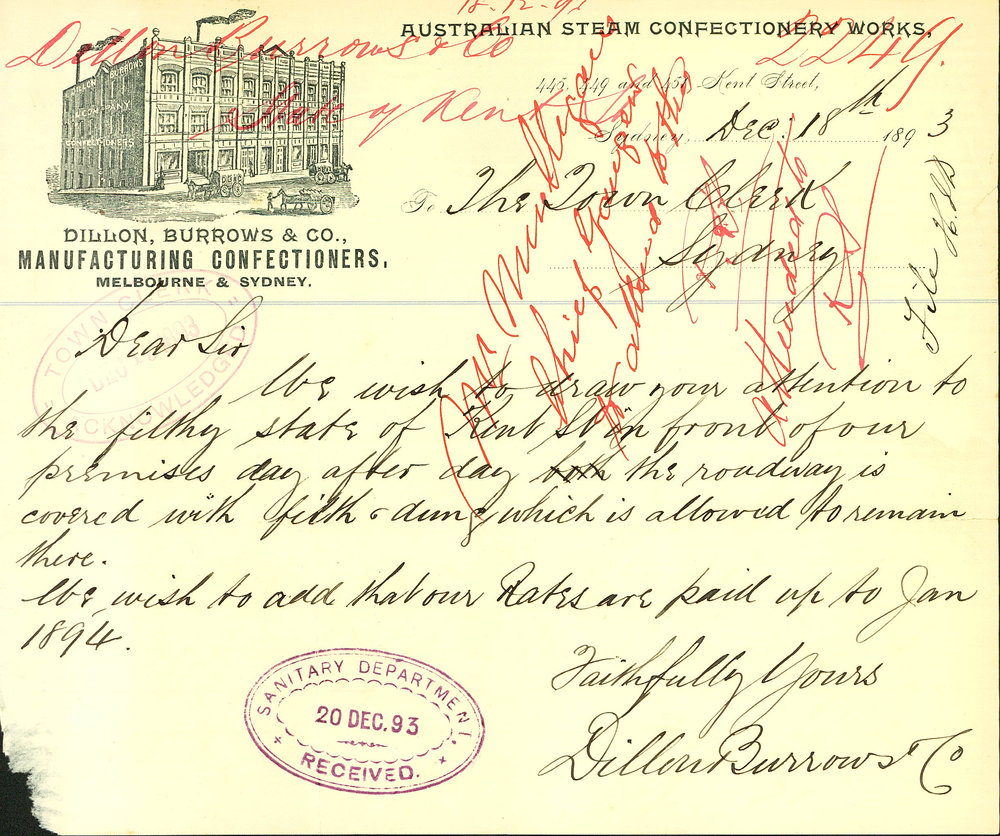 18.12.93
AUSTRALIAN STEAM CONFECTIONERY WORKS,
Dillon Burrows & Co
2249.
445, 449 and 451 Kent Street,
State of Kent St
Sydney, Dec. 18th 1893
To The Town Clerk
Sydney
DILLON BURROWS
COMPANY
CONFECTIONERS
DILLON, BURROWS & CO.,
MANUFACTURING CONFECTIONERS,
MELBOURNE & SYDNEY.
TOWN CLERK
DEC
ACKNOWLEDGED
File
Dear Sir
We wish to draw your attention to
the filthy state of Kent St in front of our
premises day after day both the roadway is
covered with filth & dung which is allowed to remain
there.
We wish to add that our Rates are paid up to Jan
1894.
Faithfully Yours
Dillon Burrows & Co
SANITARY DEPARTMENT.
20 DEC. 93
RECEIVED.
Attended to